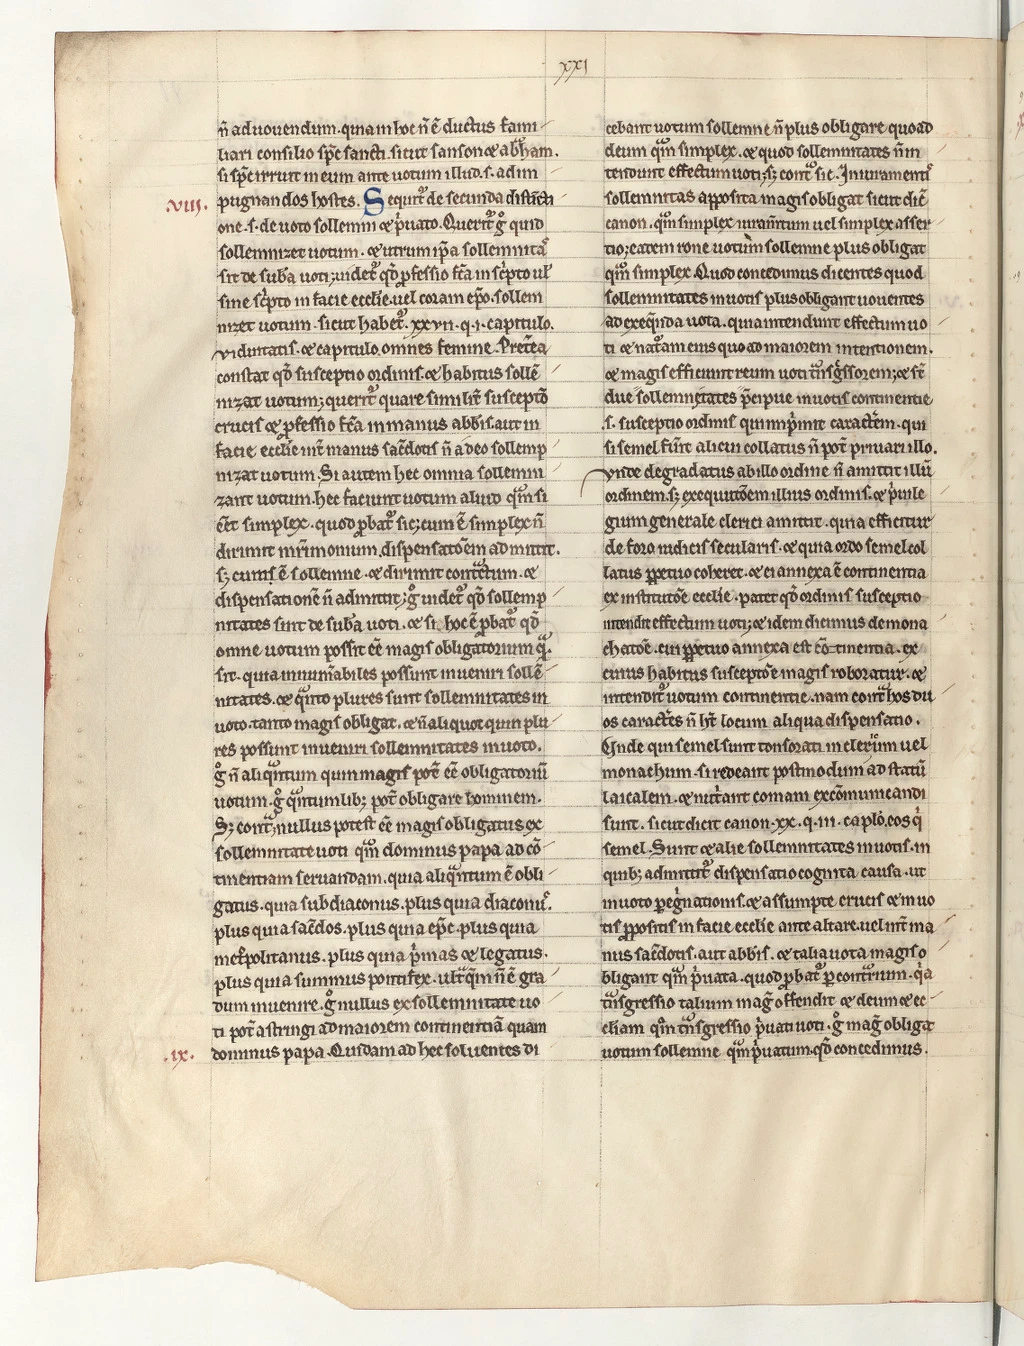 xxi
n̄ ad uouendum. quia in hoc n̄ ē ductus fami
liari consilio sp̄c sancti. sicut sanson ⁊ abͣham.
si sp̄c irruit in eum ante uotum illud .s. ad im
.viii. pugnandos hostes. Sequitᷣ de secunda distĩcti
one .s. de uoto sollemni ⁊ p̍uato. Queritᷣ gͦ quid
sollemnizet uotum. ⁊ utrum ip̄a sollemnitas
sit de subā uoti; uidetᷣ qđ ꝓfessio fc̄a in sc̍pto ul̕
sine sc̍pto in facie ecclie uel coram ep̄o. sollem
nizet uotum. sicut habetᷣ. xxvii. q. i. capitulo.
viduitatis. ⁊ capitulo. omnes femine. Pret̄ea
constat qđ susceptio ordinis ⁊ habitus sollē
nizat uotum; queritᷣ quare similit̄ susceptio
crucis ⁊ ꝓfessio fc̄a in manus abb̄is. aut in
facie ecclie int̄ manus sac̄dotis n̄ adeo sollemp
nizat uotum. Si autem hec omnia sollemni
zant uotum. hec faciunt uotum aliud qᷓm si
ēēt simplex. quod ꝓbatᷣ sic; cum ē simplex n̄
dirimit mr̄imonium. dispensatōem admittit.
sȝ cum ē sollemne. ⁊ dirimit contᷓctum. ⁊
dispensationē n̄ admittit; gͦ uidetᷣ qđ sollemp
nitates sint de subā uoti. ⁊ si hoc ē ꝓbatᷣ qđ
omne uotum possit ēē magis obligatorium qᷓ.
sit. quia innum̄abiles possunt inueniri sollē
nitates. ⁊ qᷓnto plures sunt sollemnitates in
uoto. tanto magis obligat. ⁊ n̄ aliquot quin plu
res possunt inueniri sollemnitates in uoto.
gͦ n̄ aliqᷓntum quin magis potē ēē obligatoriū
uotum. gͦ qᷓntumlibȝ pot̄ obligare hominem.
Sȝ contᷓ; nullus potest ēē magis obligatus ex
sollemnitate uoti qᷓm dominus papa ad cō
tinentiam seruandam. quia aliqᷓntum ē obli
gatus. quia subdiaconus. plus quia diaconᷣ.
plus quia sac̄dos. plus quia ep̄c. plus quia
met̍politanus. plus quia p̍mas ⁊ legatus.
plus quia summus pontifex. ult̍ qᷓm n̄ ē gra
dum inuenire. gͦ nullus ex sollemnitate uo
ti pot̄ astringi ad maiorem continentiā quam
.ix. dominus papa. Quidam ad hec soluentes di
cebant uotum sollemne n̄ plus obligare quoad
deum qᷓm simplex. ⁊ quod sollemnitates n̄ in
tendunt effectum uoti; sȝ contᷓ sic. In iuramentis
sollemnitas apposita magis obligat sicut dic̄
canon. qᷓm simplex iuram̄tum uel simplex asser
tio; eatem rōne uotum sollemne plus obligat
qᷓm simplex. Quod concedimus dicentes quod
sollemnitates in uotis plus obligant uouentes
ad exeqᷓnda uota. quia intendunt effectum uo
ti ⁊ nat̄am eius quo ad maiorem intentionem.
⁊ magis efficiunt reum uoti tᷓnsg̍ssorem; ⁊ st̄
due sollemnitates p̄cipue in uotis continentie
.s. susceptio ordinis qui imp̍mit caract̄em. qui
si semel fūit alicui collatus n̄ pot̄ priuari illo.
vnde degradatus ab illo ordine n̄ amittit illū
ordinem. sȝ exequutiōem illius ordinis. ⁊ p̍uile
gium generale clerici amittit. quia efficitur
de foro iudicis secularis. ⁊ quia ordo semel col
latus ꝑpetuo coheret. ⁊ ei annexa ē continentia
ex institutōe ecclie. patet qđ ordinis susceptio
intendit effectum uoti; ⁊ idem dicimus de mona
chatōe. cui ꝑpetuo annexa est cōtinentia. ex
cuius habitus susceptōe magis roboratur. ⁊
intenditᷣ uotum continentie. nam contᷓ hos du
os caract̄es n̄ ht̄ locum aliqua dispensatio.
Unde qui semel sunt tonsorati in clericum uel
monachum. si redeant postmodum ad statū
laicalem. ⁊ nut̍ant comam excōmunicandi
sunt. sicut dicit canon. xx. q. iii. caplo. eos q̍
semel. Sunt ⁊ alie sollemnitates in uotis. in
quibȝ admittitᷣ dispensatio cognita causa. ut
in uoto peg̍nationis. ⁊ assumpte crucis ⁊ in uo
tis ꝓpositis in facie ecclie ante altare. uel int̄ ma
nus sac̄dotis. aut abbis. ⁊ talia uota magis o
bligant qᷓm p̍uata. quod ꝓbatᷣ ꝑ contᷓrium. qᷓ
tᷓnsgressio talium mag̍ offendit ⁊ deum ⁊ ec
cliam qᷓm tᷓnsgressio p̍uati uoti. gͦ mag̍ obligat
uotum sollemne qᷓm p̍uatum. qđ concedimus.